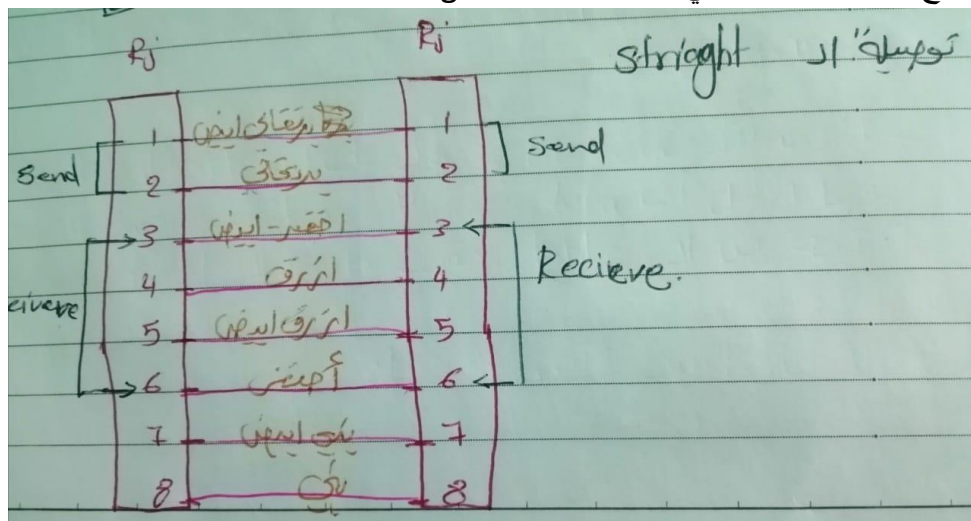 توصيلة الـ Strigght
Rj Rj
1 برتقالي ابيض 1
2 برتقالي 2
3 اخضر - ابيض 3
4 ازرق 4
5 ازرق ابيض 5
6 أخضر 6
7 بني ابيض 7
8 بني 8
Send
Send
Recieve.